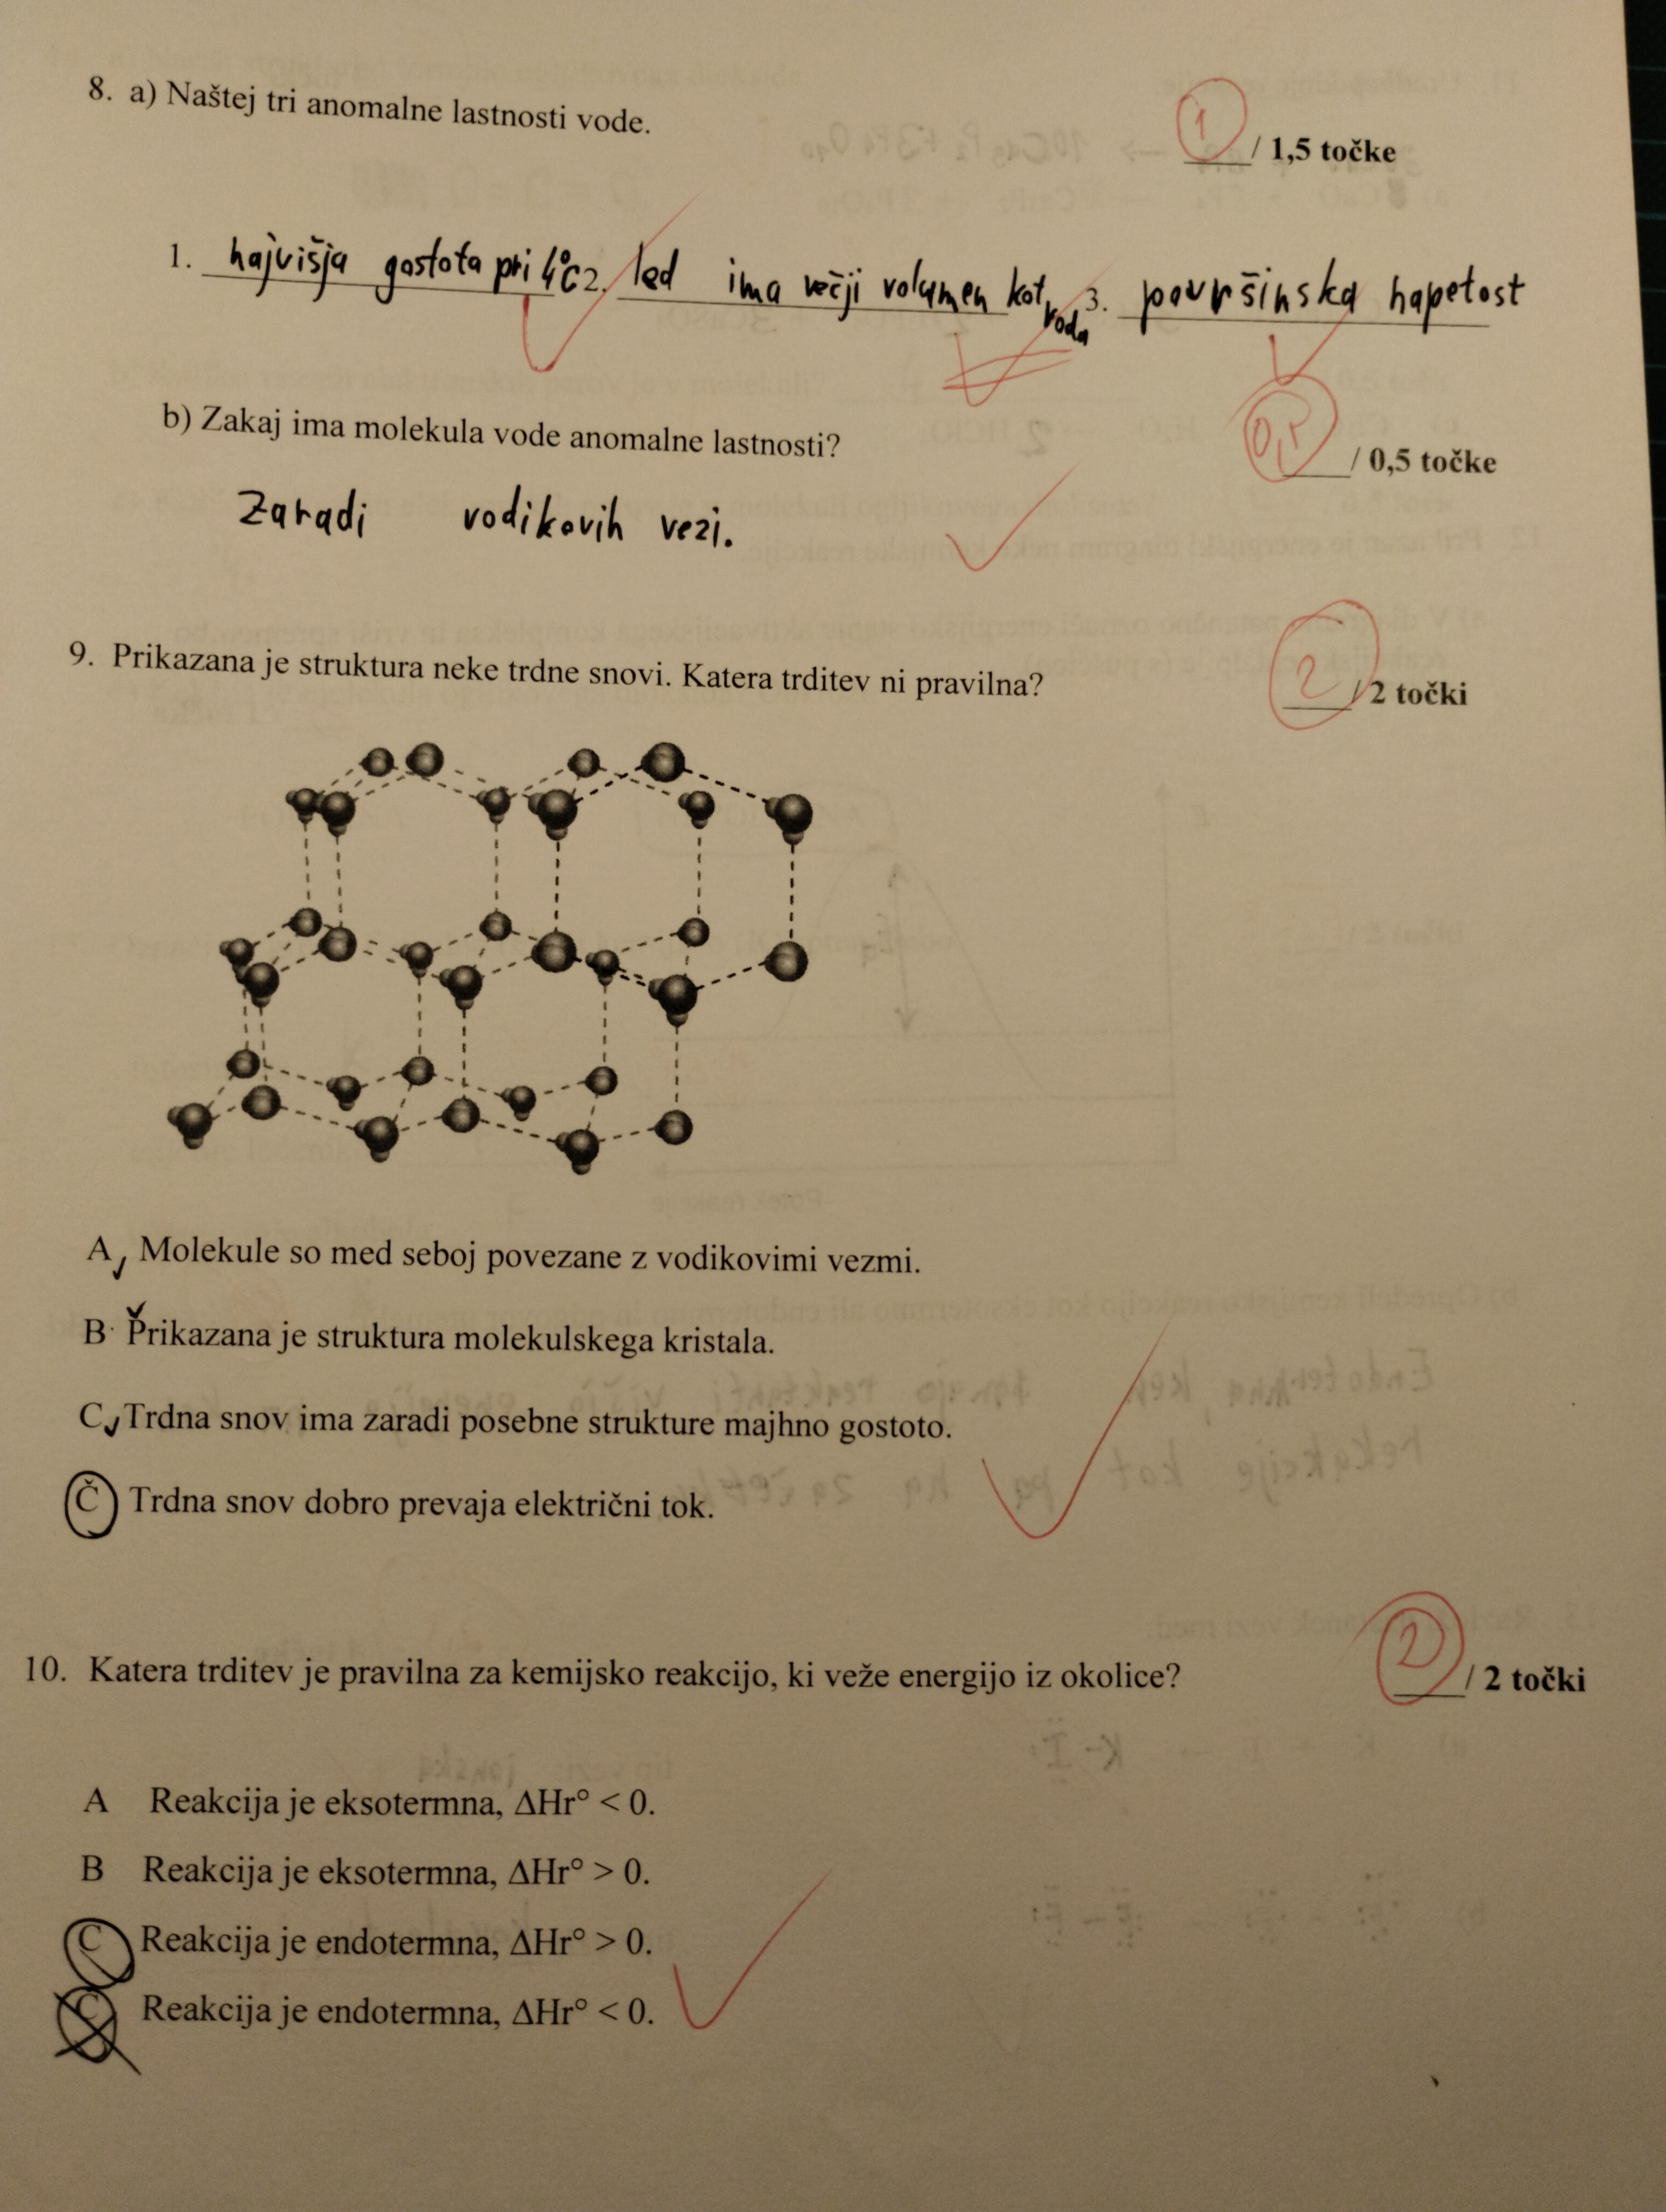 8. a) Naštej tri anomalne lastnosti vode.
1 / 1,5 točke
1. najvišja gostota pri 4°C 2. led ima večji volumen kot voda 3. površinska napetost
b) Zakaj ima molekula vode anomalne lastnosti?
0,5 / 0,5 točke
Zaradi vodikovih vezi.
9. Prikazana je struktura neke trdne snovi. Katera trditev ni pravilna?
2 / 2 točki
A Molekule so med seboj povezane z vodikovimi vezmi.
B Prikazana je struktura molekulskega kristala.
C Trdna snov ima zaradi posebne strukture majhno gostoto.
Č Trdna snov dobro prevaja električni tok.
10. Katera trditev je pravilna za kemijsko reakcijo, ki veže energijo iz okolice?
2 / 2 točki
A Reakcija je eksotermna, ΔHr° < 0.
B Reakcija je eksotermna, ΔHr° > 0.
C Reakcija je endotermna, ΔHr° > 0.
Reakcija je endotermna, ΔHr° < 0.